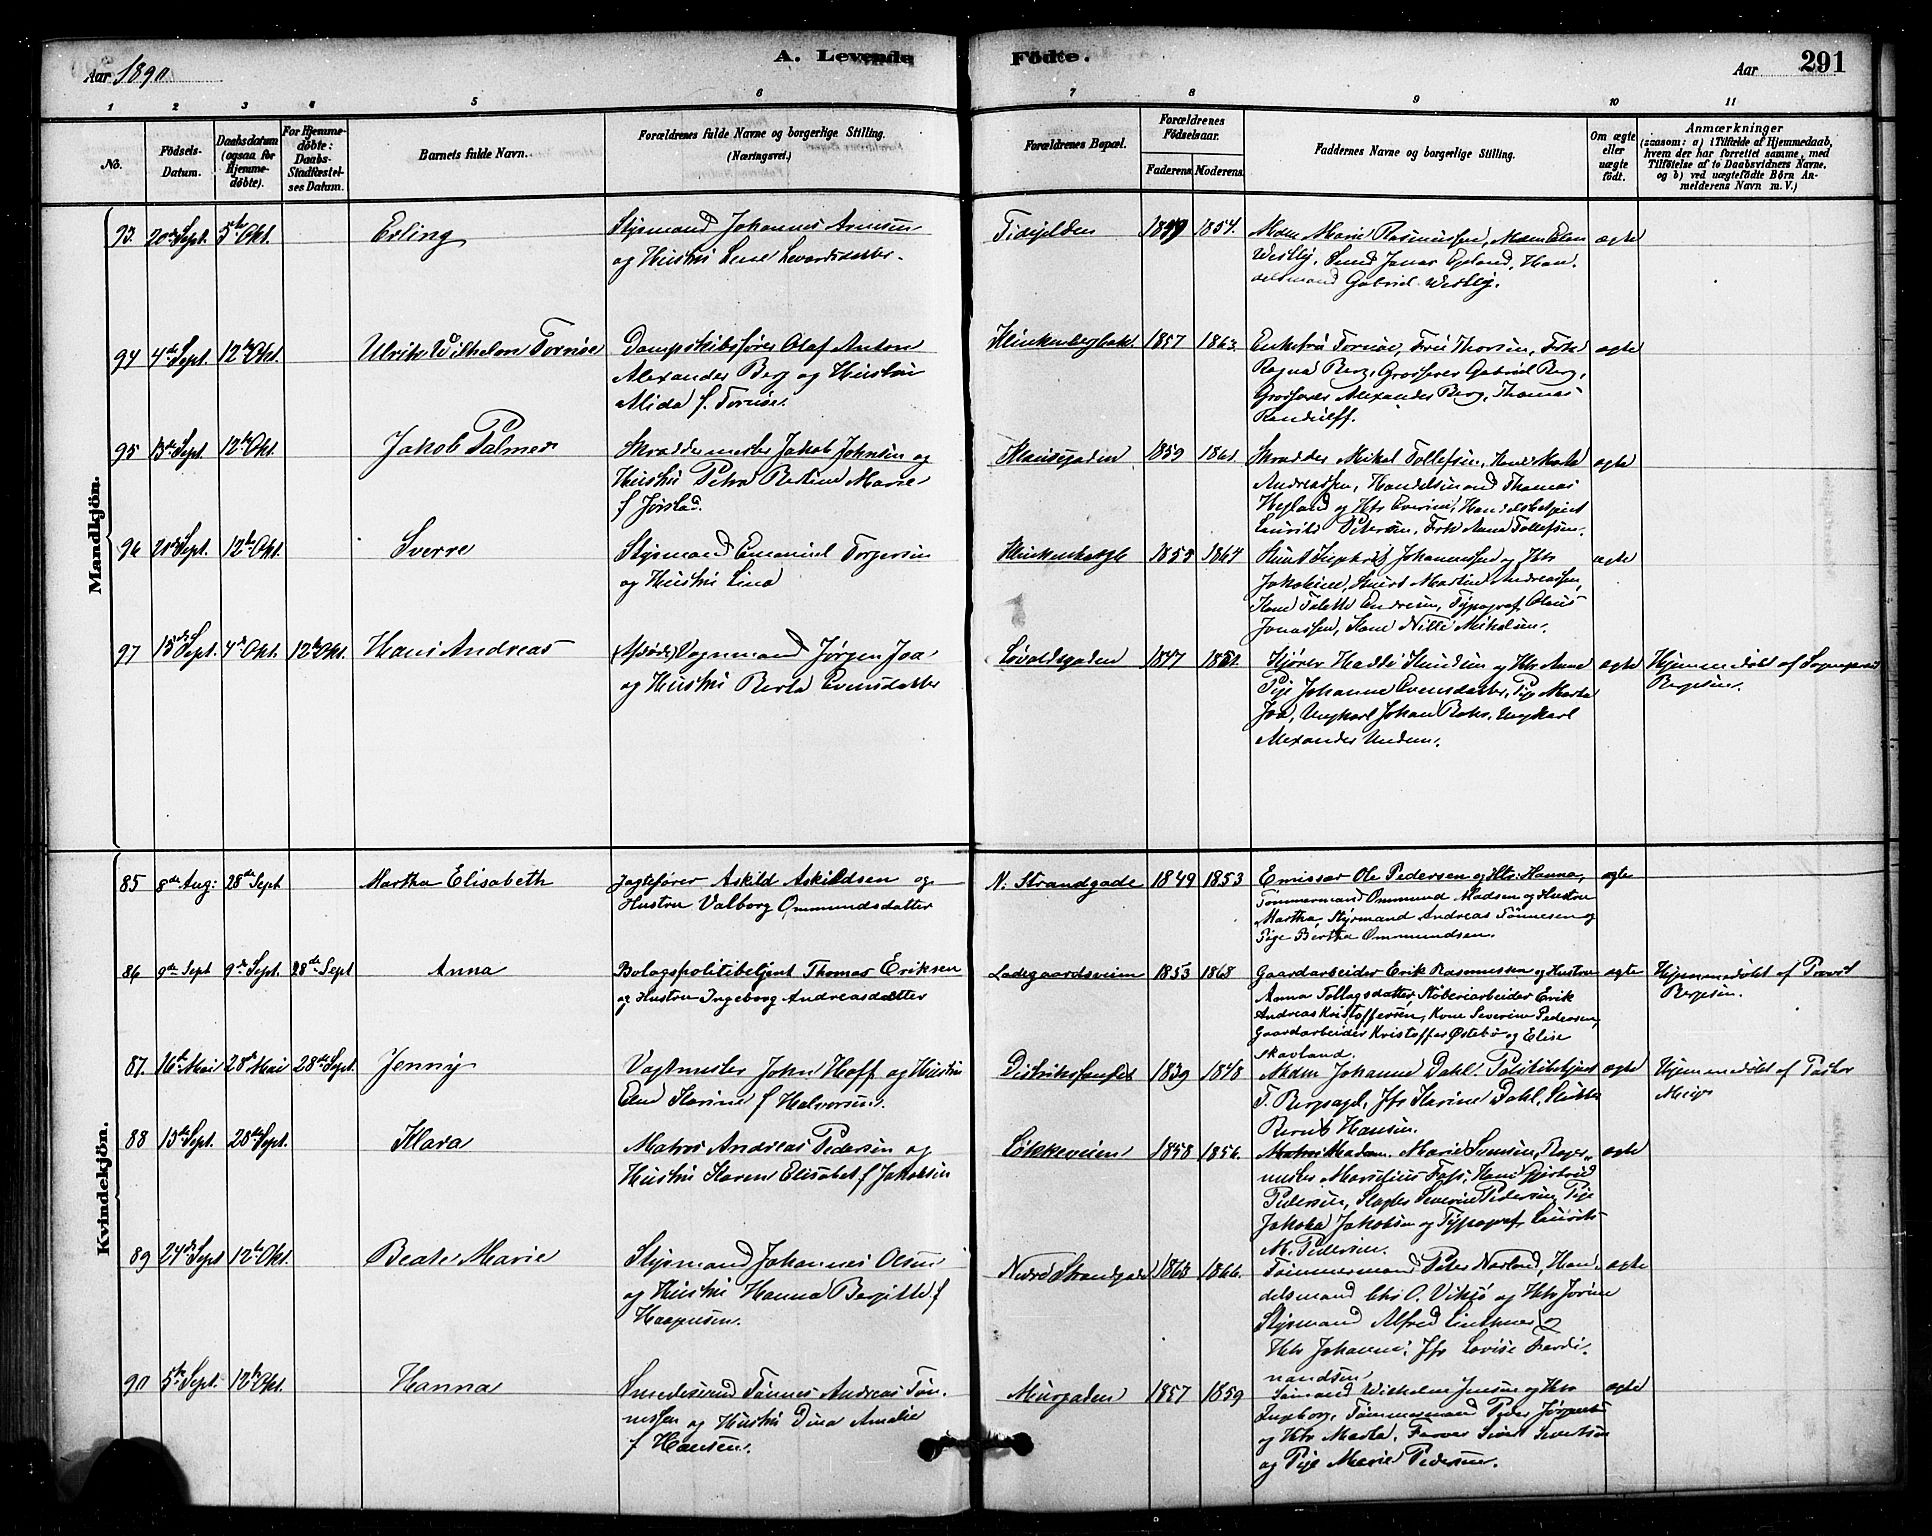 Aar 1890.
A. Levende
Födte.
Aar
291
1 2 3 4 5 6 7 8 9 10 11
No.
Födsels-
Datum.
Daabsdatum
(ogsaa for
Hjemme-
döbte).
For Hjemme-
döbte:
Daabs-
Stadfæstel-
ses Datum.
Barnets fulde Navn.
Forældrenes fulde Navne og borgerlige Stilling.
(Næringsvei.)
Forældrenes Bopæl.
Forældrenes
Födselsaar.
Faderens
Moderens
Faddernes Navne og borgerlige Stilling.
Om ægte
eller
uægte
födt.
Anmærkninger
(saasom: a) i Tilfælde af Hjemmedaab,
hvem der har forrettet samme, med
Tilföielse af to Daabsvidners Navne,
og b) ved uægtefödte Börn An-
melderens Navn m. V.)
Mandkjön.
93. 20de Sept. 5te Okt.
Erling
Styrmand Johannes Arnesen
og Hustru Lene
1854.
Mdm Marie Rasmussen, Mdm Elen
Westly, Smed Jonas Egeland, Han-
delsmand Gabriel Westly.
ægte
94 4de Sept. 12te Okt.
Ulrik Wilhelm Tornøe
Dampskibsfører Olaf Anton
Alexander Berg og Hustru
Alida f. Tornøe.
1857 1863.
Enkefru Tornøe, Fru Thorsen, Frk
Ragna Berg, Grosserer Gabriel Berg,
Grosserer Alexander Berg, Thomas
Randulff.
ægte
95 13de Sept. 12te Okt.
Jakob Palmer
Skræddermester Jakob Johnsen og
Hustru Petra Bertine Marie
f. Jørstad.
1859 1861.
Skrædder Mikal Tollefsen, Kone Marta
Andreassen, Handelsmand Thomas
Høyland og Hstr Everine, Handelsbetjent
Laurits Petersen, Frk Anna Tollefsen.
ægte
96 20de Sept. 12te Okt.
Sverre
Styrmand Emanuel Torgersen
og Hustru Lina
1864
Johannessen og Hstr
Jakobine, Snedk. Martin Andreassen,
Kone Talette Endresen, Typograf Olaus
Jonassen, Kone Nille Mikalsen.
ægte
97 15de Sept. 4de Okt. 12te Okt.
Hans Andreas
(Afdøde) Vognmand Jørgen Joa
og Hustru Berta Evensdatter
Løvoldsgaden
1847
Kjører Hadle Knudsen og Hstr Anne
Pige Johanne Evensdatter, Pige Marta
Joa, Ungkarl Johan Boks, Ungkarl
Alexander Undem.
ægte
Hjemmedøbt af Sognepræst
Bergesen.
Kvindekjön.
85 8de Aug: 28de Sept
Martha Elisabeth
Jagtefører Askild Askildsen og
Hustru Valborg Ommundsdatter
N. Strandgade
1849 1853
Emissær Ole Pedersen og Hstr. Hanna,
Tømmermand Ommund Madsen og Hustru
Martha, Styrmand Andreas Tønnesen og
Pige Bertha Ommundsen.
ægte
86 9de Sept 9de Sept. 28de Sept
Anna
Bolagspolitibetjent Thomas Eriksen
og Hustru Ingeborg Andreasdatter
Ladegaardsveien
1853 1868
Gaardarbeider Erik Rasmussen og Hustru
Anna Tollagsdatter, Støberiarbeider Erik
Andreas Kristoffersen, Kone Severine Pedersen,
Gaardarbeider Kristoffer Østebø og Elise
Skavland.
ægte
Hjemmedøbt af Provst
Bergesen.
87. 16de Mai 28de Mai 28de Sept.
Jenny
Vagtmester John Hoff og Hustru
Elen Karine f. Halvorsen.
Distriktsfængslet
1839 1848
Mdm Johanne Dahl, Politibetjent
T. Bergsagel, Jfr Karine Dahl, Slutter
Bernt Hansen.
ægte
Hjemmedøbt af Pastor
88 13de Sept. 28de Sept.
Klara
Matros Andreas Pedersen og
Hustru Karen Elisabet f. Jakobsen
Løkkeveien
1858 1856.
Madam Marie Svensen, Bager-
mester Marselius Foss, Kone Gjertrud
Pedersen, Slagter Severin Pedersen, Pige
Jakoba Jakobsen og Typograf Laurits
M. Pedersen.
ægte
89 24de Sept 12te Okt.
Beate Marie
Styrmand Johannes Olsen
og Hustru Hanna Bergitte f.
Haagensen.
Nedre Strandgade
1866.
Tømmermand Peter Norland, Han-
delsmand Chr. O. Viksø og Hstr Jørine
Styrmand Alfred og
Hstr Johanne, Jfr Lovise Ferdi-
nandsen.
ægte
90 5te Sept. 12te Okt.
Hanna
Smedesvend Tønnes Andreas Tøn-
nessen og Hustru Dina Amalie
f. Hansen.
Murgaden
1857 1859
Sømand Wilhelm Jensen og Hstr
Ingeborg, Tømmermand Peder Jørgensen
og Hstr Marta, Farver Sivert Sivertsen
og Pige Marie Pedersen.
ægte